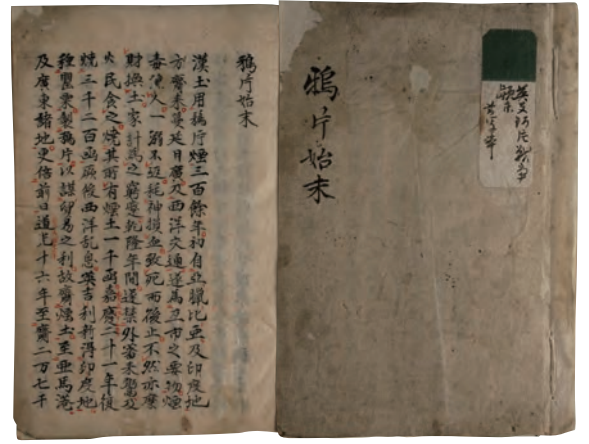 英支阿片戰爭
顛末
鴉片始末
鴉片始末
漢土用鴉片煙三百餘年初自亞臘比亞及印度地
方齎来蔓延日廣及西洋交通遂為互市之要物煙
毒使人一溺不返耗神損血致死而後止不然亦糜
財換土家計為之窮乾隆年間遂禁外来鬻及
民食之燒其所有煙土一千函嘉慶二十一年復
燒三千二百函厥後西洋乱息英吉利新得印度地
種罌粟製鴉片以謀易之利故齎煙土至亜馬港
及廣東諸地更倍前日道光十六年至齎二万七千